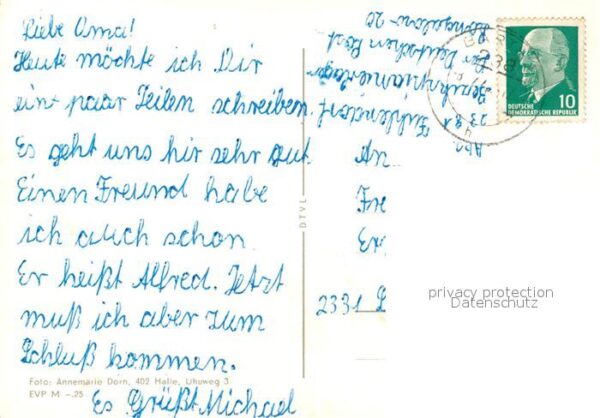 Liebe Oma!
Heute möchte ich Dir
ein paar Zeilen schreiben.
Es geht uns hir sehr gut.
Einen Freund habe
ich auch schon
Er heißt Alfred. Jetzt
muß ich aber zum
Schluß kommen.
Es Grüßt Michael
Foto: Annemarie Dorn, 402 Halle, Uhuweg 3
EVP M –.25
DTVL
Abs.
2381
der Deutschen Post
An
2331
DEUTSCHE
DEMOKRATISCHE REPUBLIK
10
privacy protection
Datenschutz